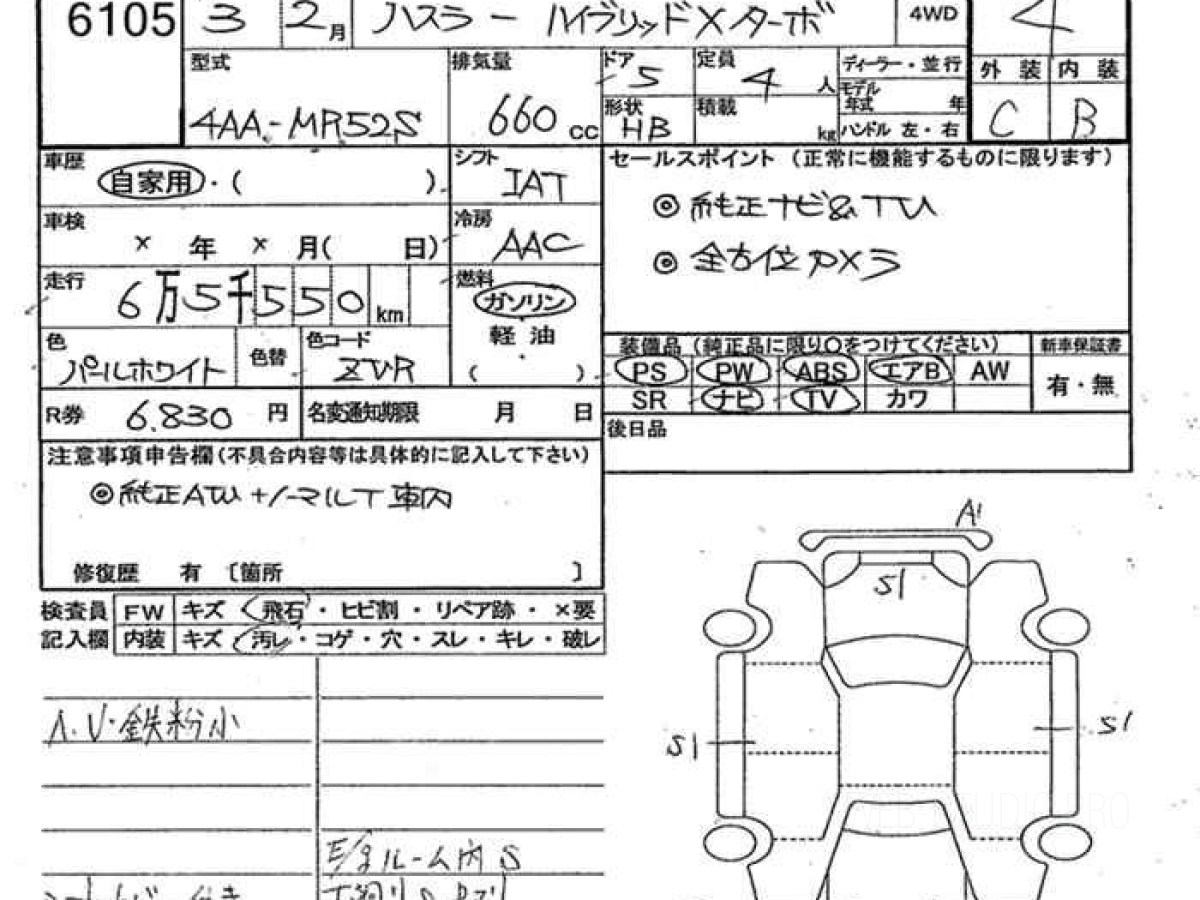 6105 3 2月 ハスラー ハイブリッドXターボ 4WD 4
型式 4AA-MR52S
排気量 660 cc
ドア 5
定員 4 人
ディーラー・並行
モデル年式 年
形状 HB
積載 kg
ハンドル 左・右
外装 内装
C B
車歴 自家用・( )
シフト IAT
セールスポイント (正常に機能するものに限ります)
◎ 純正ナビ&TV
◎ 全方位カメラ
車検 × 年 × 月( 日)
冷房 AAC
走行 6万5千550 km
燃料 ガソリン
軽油
( )
色 パールホワイト 色替 色コード ZVR
装備品 (純正品に限り○をつけてください) 新車保証書
PS PW ABS エアB AW 有・無
SR ナビ TV カワ
R券 6.830 円 名変通知期限 月 日
後日品
注意事項申告欄(不具合内容等は具体的に記入して下さい)
◎純正ATW+ノーマルT車内
修復歴 有 〔箇所 〕
検査員 FW キズ 飛石・ヒビ割・リペア跡・×要
記入欄 内装 キズ 汚レ・コゲ・穴・スレ・キレ・破レ
A1
S1
S1
S1
鉄粉小
ルーム内 S